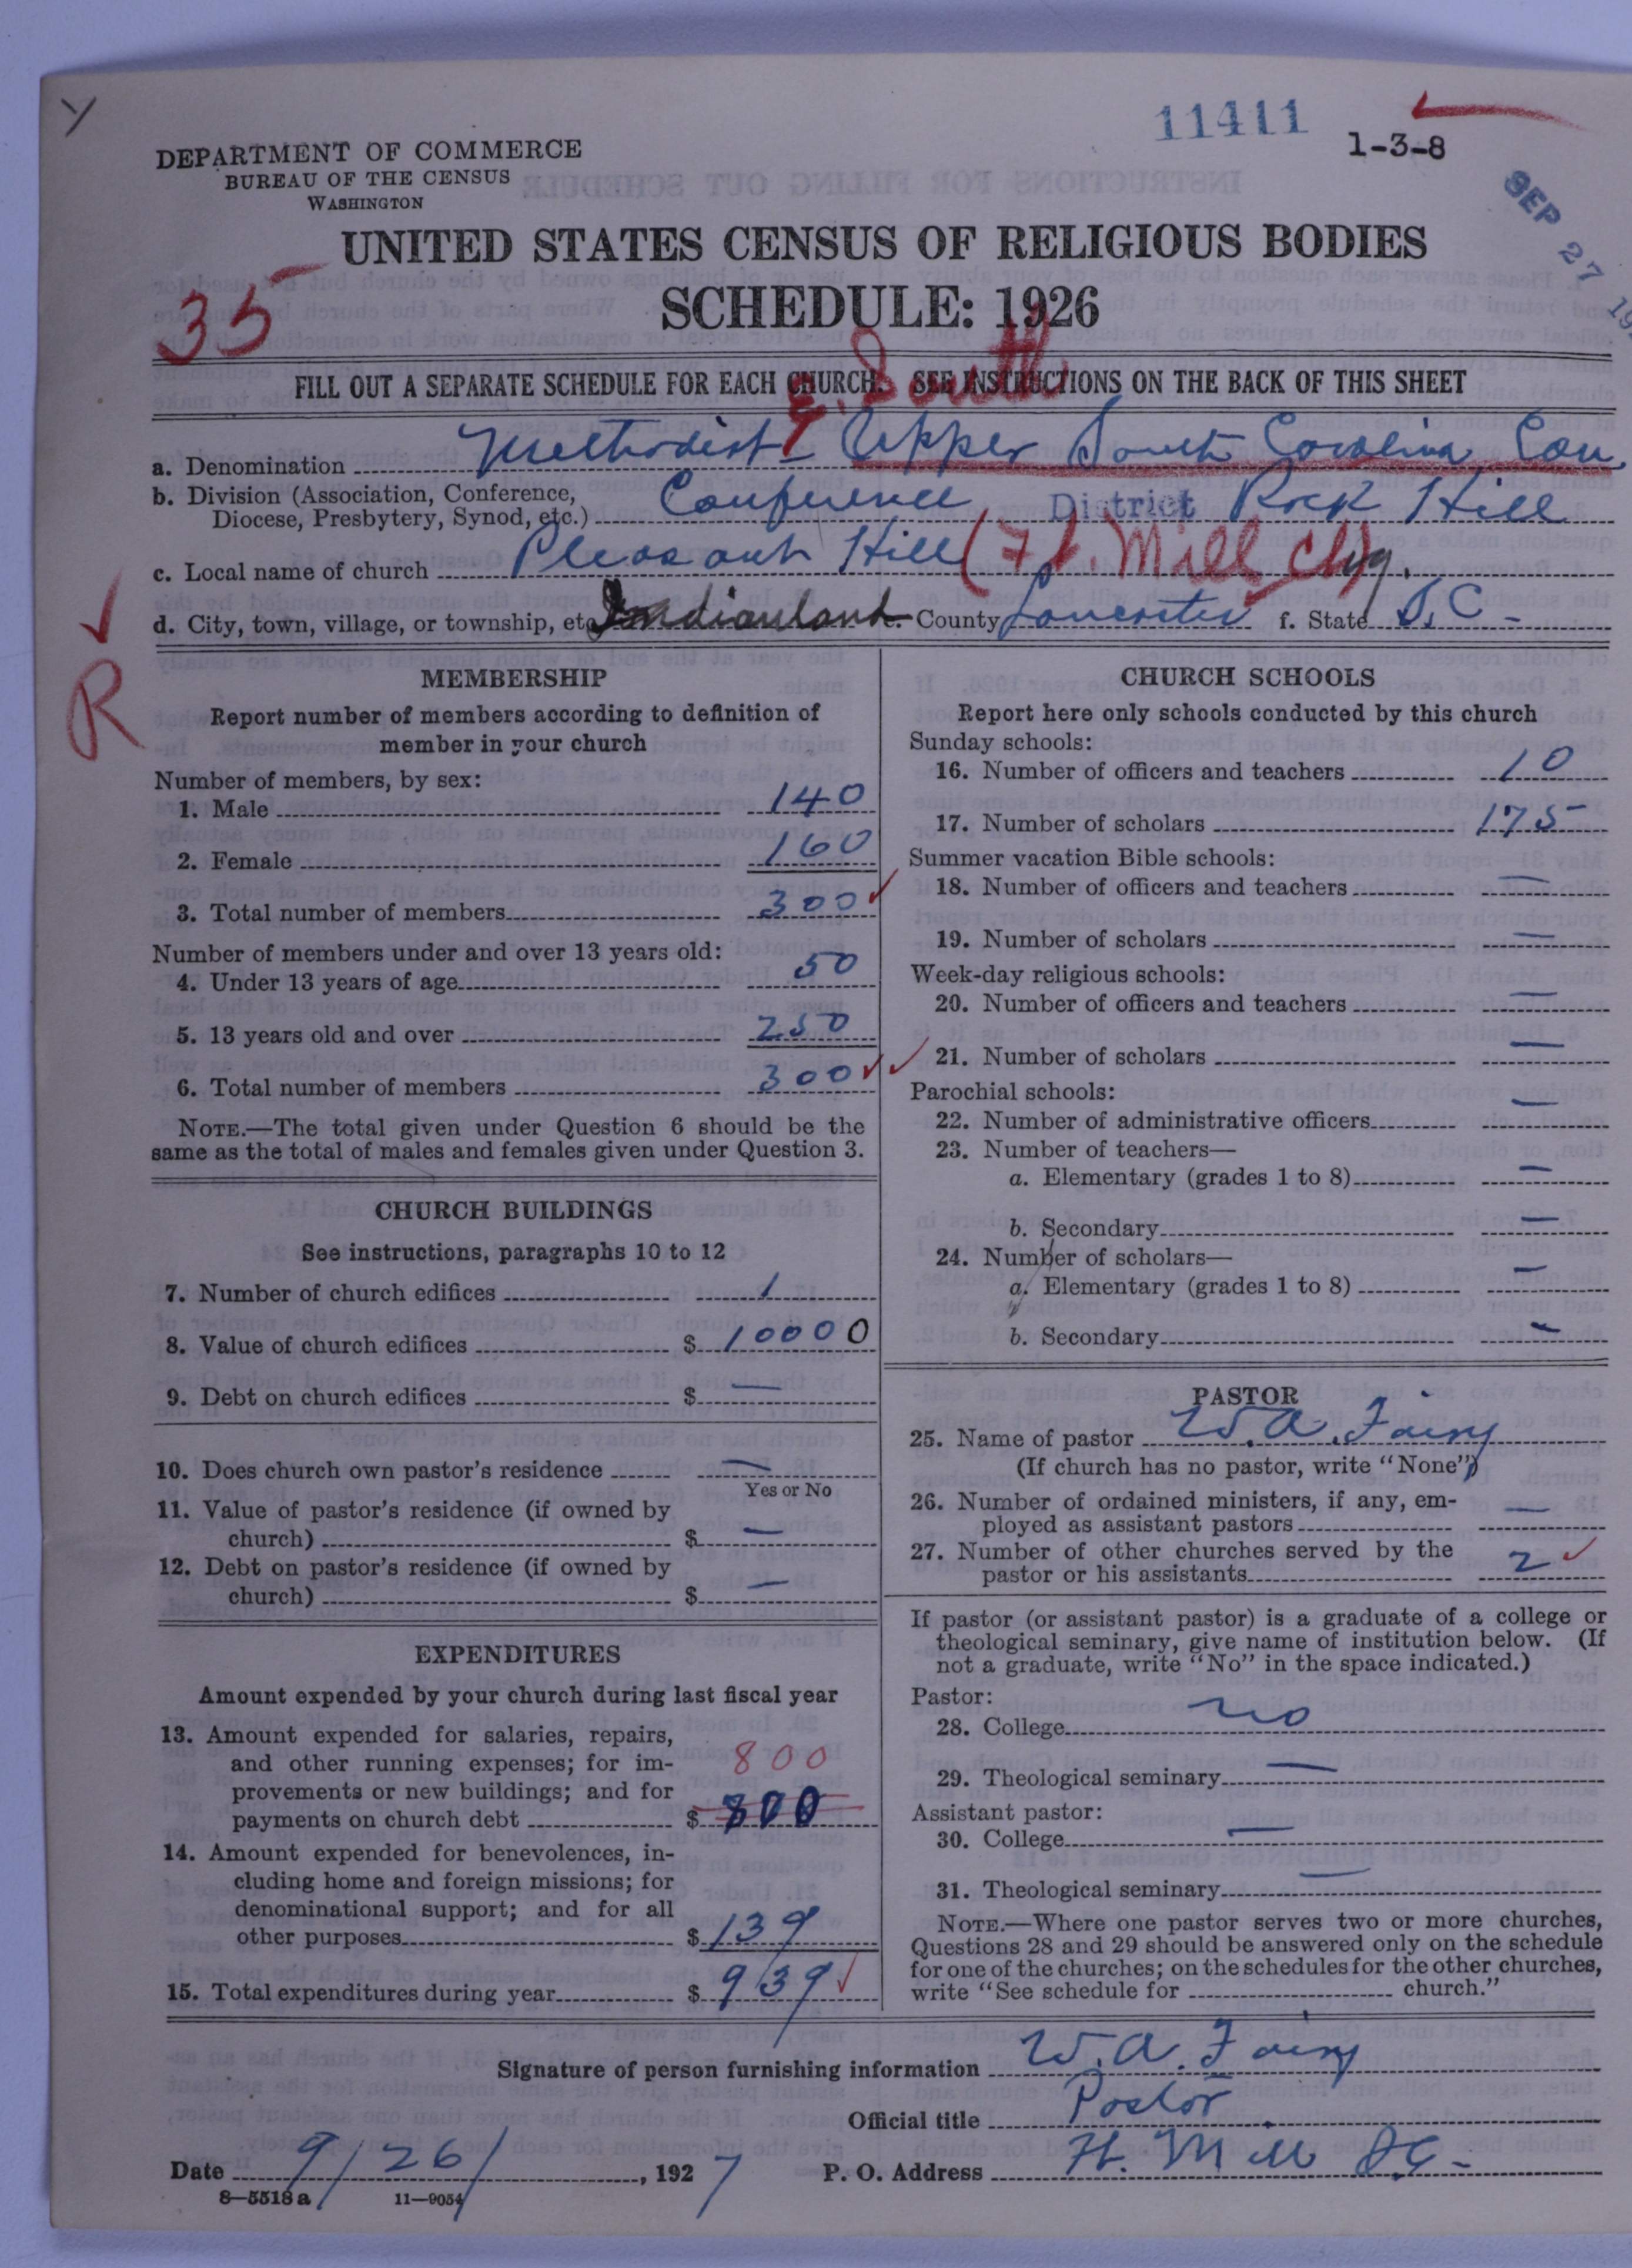 11411
1-3-8
SEP 27 19
DEPARTMENT OF COMMERCE
BUREAU OF THE CENSUS
WASHINGTON
UNITED STATES CENSUS OF RELIGIOUS BODIES
SCHEDULE: 1926
35
FILL OUT A SEPARATE SCHEDULE FOR EACH CHURCH. SEE INSTRUCTIONS ON THE BACK OF THIS SHEET
E. South
a. Denomination Methodist - Upper South Carolina Con
b. Division (Association, Conference, Diocese, Presbytery, Synod, etc.) Conference District Rock Hill
c. Local name of church Pleasant Hill (Ft. Mill Chg.
d. City, town, village, or township, etc. Indianland e. County Lancaster f. State S.C.-
R
MEMBERSHIP
Report number of members according to definition of
member in your church
Number of members, by sex:
1. Male 140
2. Female 160
3. Total number of members 300
Number of members under and over 13 years old:
4. Under 13 years of age 50
5. 13 years old and over 250
6. Total number of members 300
NOTE.—The total given under Question 6 should be the
same as the total of males and females given under Question 3.
CHURCH BUILDINGS
See instructions, paragraphs 10 to 12
7. Number of church edifices 1
8. Value of church edifices $ 10000
9. Debt on church edifices $ —
10. Does church own pastor's residence —
Yes or No
11. Value of pastor's residence (if owned by
church) $ —
12. Debt on pastor's residence (if owned by
church) $ —
EXPENDITURES
Amount expended by your church during last fiscal year
13. Amount expended for salaries, repairs,
and other running expenses; for im-
provements or new buildings; and for
800
payments on church debt $ 800
14. Amount expended for benevolences, in-
cluding home and foreign missions; for
denominational support; and for all
other purposes $ 139
15. Total expenditures during year $ 939
CHURCH SCHOOLS
Report here only schools conducted by this church
Sunday schools:
16. Number of officers and teachers 10
17. Number of scholars 175
Summer vacation Bible schools:
18. Number of officers and teachers —
19. Number of scholars —
Week-day religious schools:
20. Number of officers and teachers —
21. Number of scholars —
Parochial schools:
22. Number of administrative officers —
23. Number of teachers—
a. Elementary (grades 1 to 8) —
b. Secondary —
24. Number of scholars—
a. Elementary (grades 1 to 8) —
b. Secondary —
PASTOR
25. Name of pastor W. A. Fairy
(If church has no pastor, write "None")
26. Number of ordained ministers, if any, em-
ployed as assistant pastors —
27. Number of other churches served by the
pastor or his assistants 2
If pastor (or assistant pastor) is a graduate of a college or
theological seminary, give name of institution below. (If
not a graduate, write "No" in the space indicated.)
Pastor:
28. College no
29. Theological seminary —
Assistant pastor:
30. College —
31. Theological seminary —
NOTE.—Where one pastor serves two or more churches,
Questions 28 and 29 should be answered only on the schedule
for one of the churches; on the schedules for the other churches,
write "See schedule for church."
Signature of person furnishing information W. A. Fairy
Official title Pastor
Date 9/26/, 1927 P. O. Address Ft. Mill S.C.-
8—5518a 11—9054